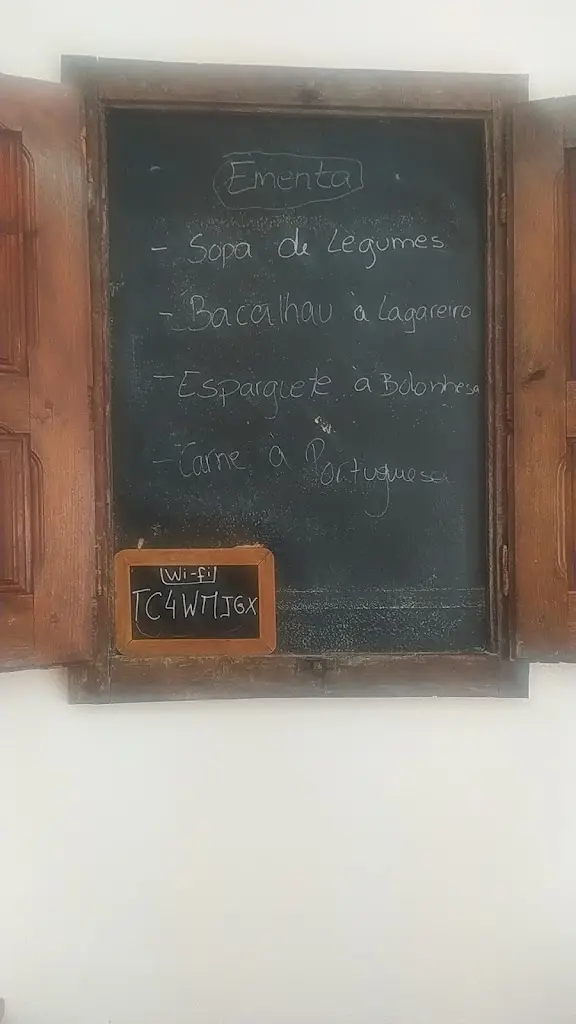 Ementa
- Sopa de Legumes
- Bacalhau à Lagareiro
- Esparguete à Bolonhesa
- Carne à Portuguesa
Wi-fi
TC4WMJGX